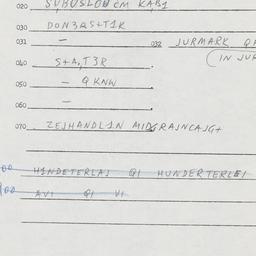 020 SUBUSLOU CM KAB1
030 DON3QS+T1K
031 — 032 JURMARK QA
040 S+A,T3R (IN JUR
050 — QKNW
060 —
070 ZEJHANDL1N MIDGRAJNCAJG+
00 HINDETERLAJ QI HUNDERTERLEI
100 AVI QI VI